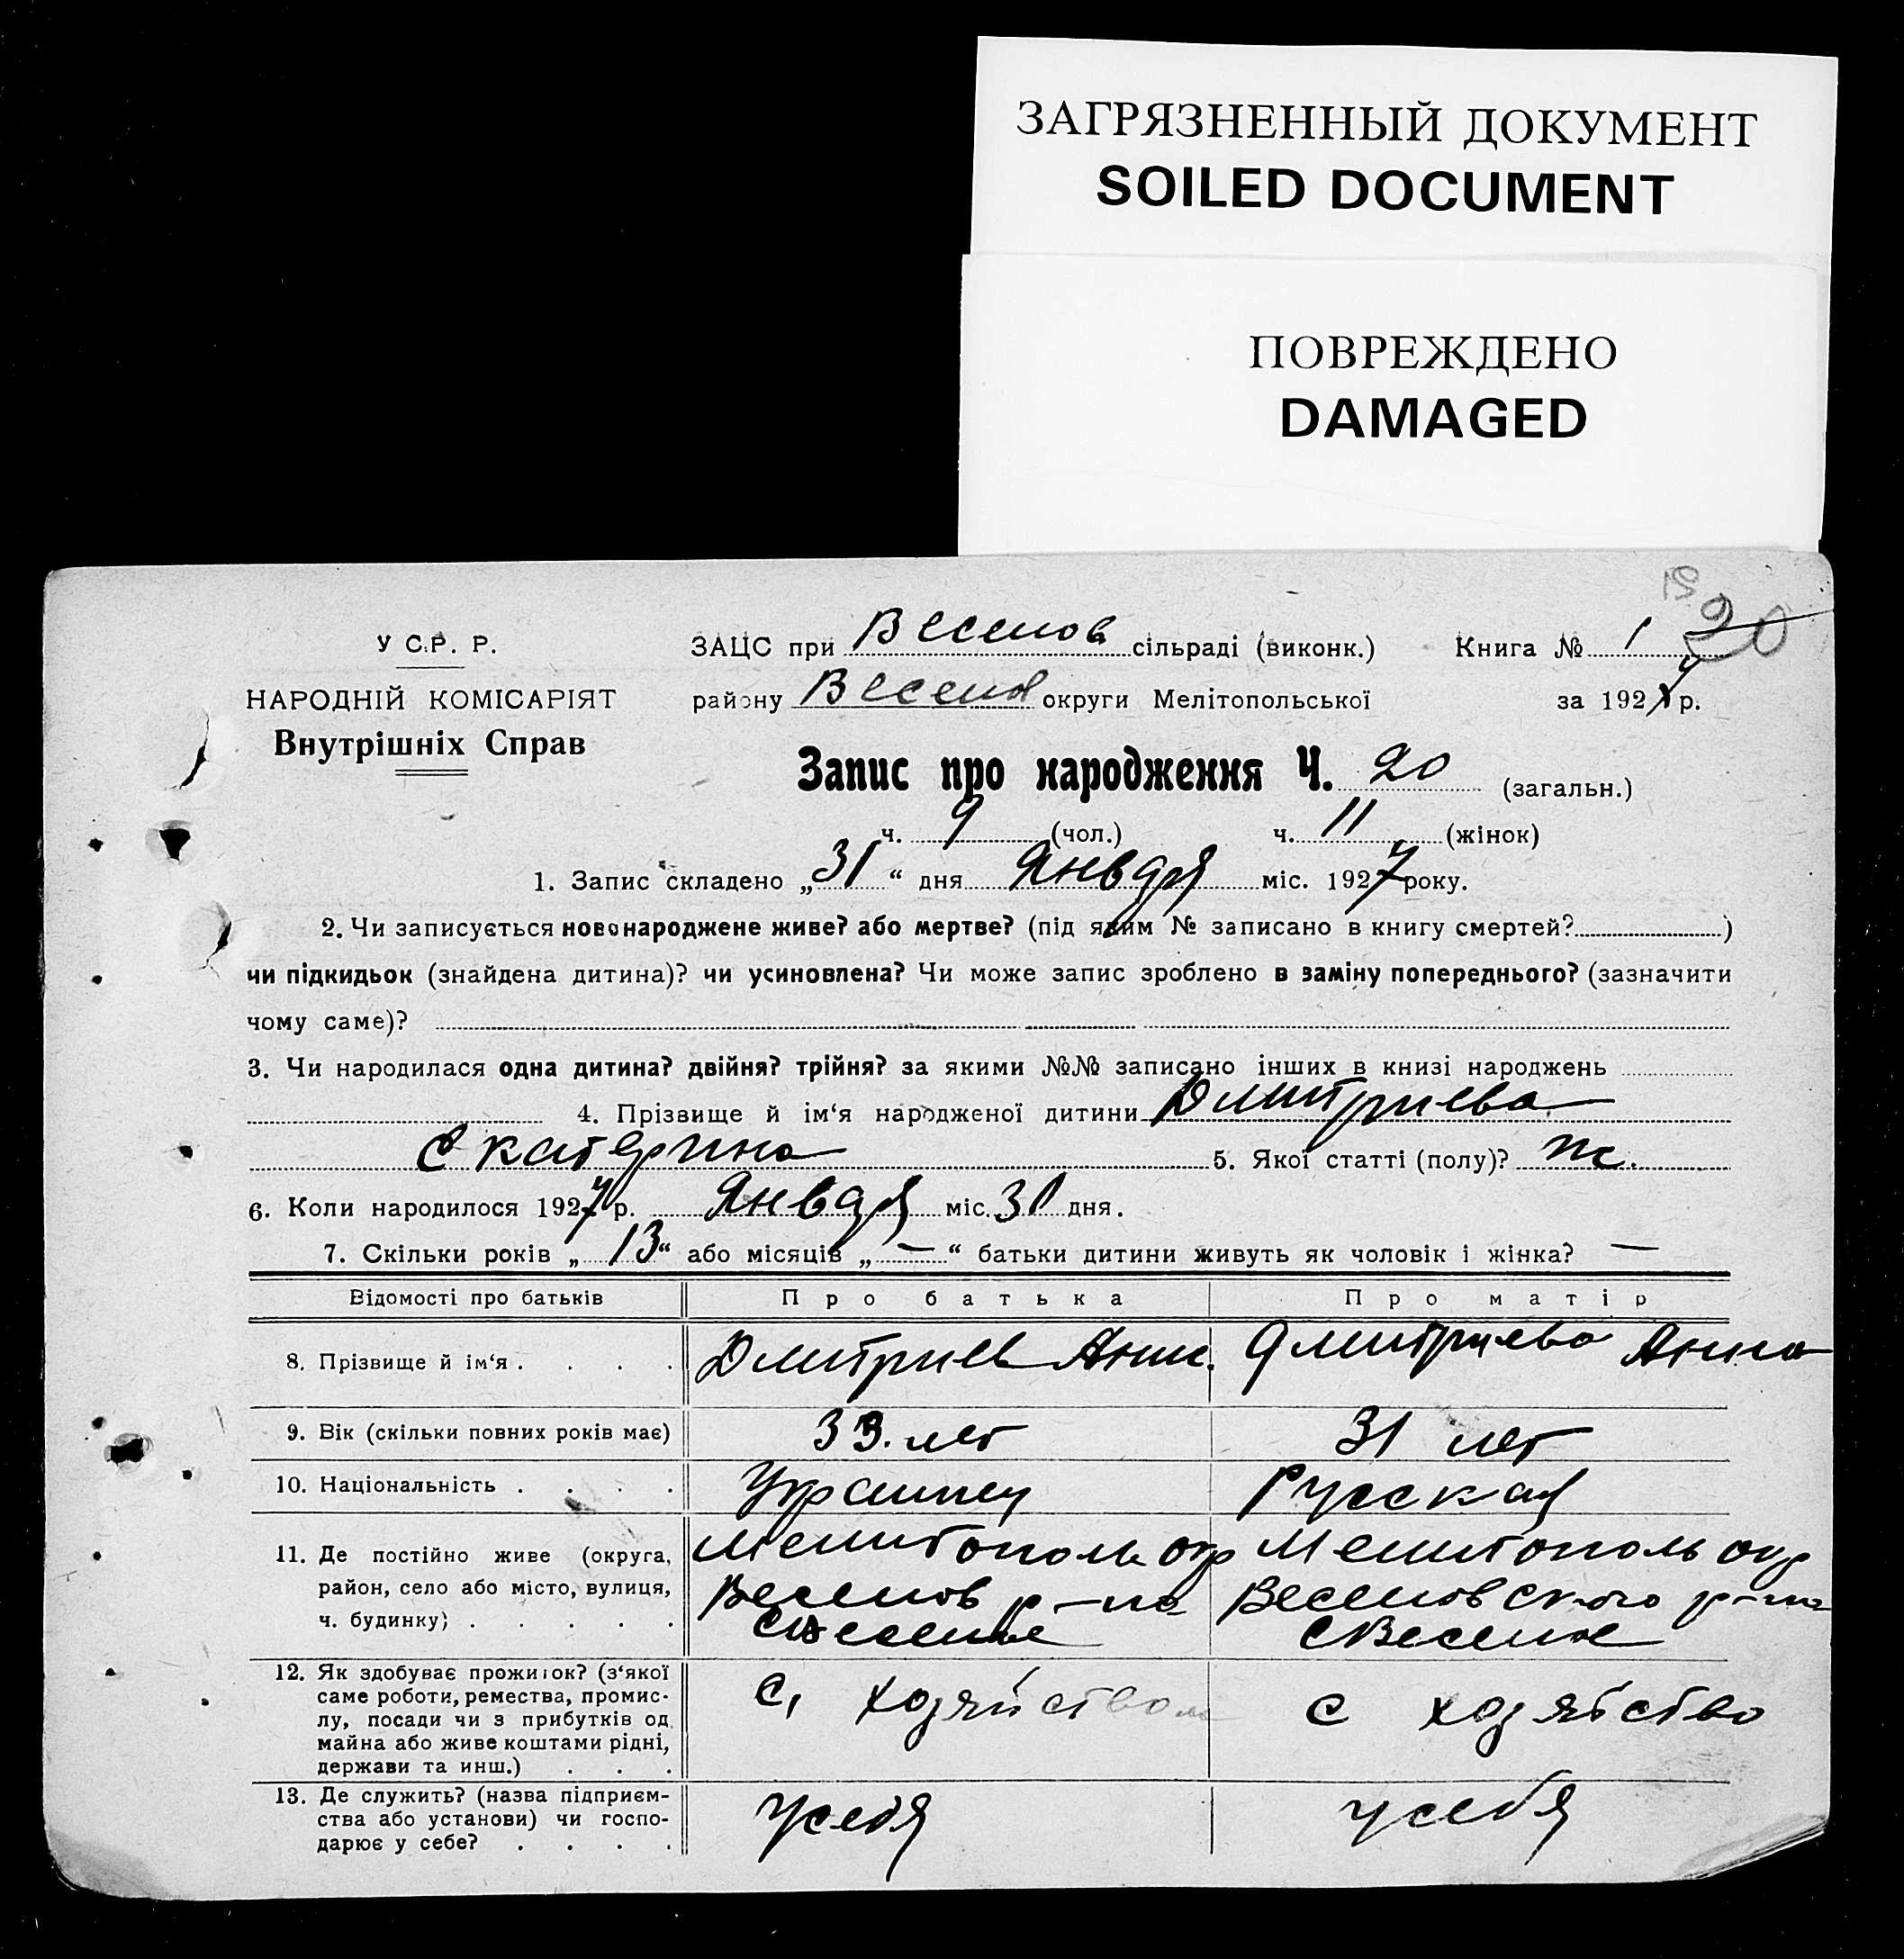 ЗАГРЯЗНЕННЫЙ ДОКУМЕНТ
SOILED DOCUMENT
ПОВРЕЖДЕНО
DAMAGED
20
У С.Р. Р.
НАРОДНІЙ КОМІСАРІЯТ
Внутрішніх Справ
ЗАЦС при Веселов сільраді (виконк.) Книга № 1
району Веселов округи Мелітопольської за 1927 р.
Запис про народження Ч. 20 (загальн.)
ч. 9 (чол.) ч. 11 (жінок)
1. Запис складено „31“ дня Января міс. 1927 року.
2. Чи записується новонароджене живе? або мертве? (під яким № записано в книгу смертей? )
чи підкидьок (знайдена дитина)? чи усиновлена? Чи може запис зроблено в заміну попереднього? (зазначити
чому саме)?
3. Чи народилася одна дитина? двійня? трійня? за якими №№ записано інших в книзі народжень
4. Прізвище й ім‘я народженої дитини Дмитриева
Екатерина 5. Якої статті (полу)? ж.
6. Коли народилося 1927 р. Января міс. 31 дня.
7. Скільки років „13“ або місяців „—“ батьки дитини живуть як чоловік і жінка? —
Відомості про батьків Про батька Про матір
8. Прізвище й ім‘я . . . . Дмитриев Дмитриева Анна
9. Вік (скільки повних років має) 33. лет 31 лет
10. Національність . . . . Украинец Русская
11. Де постійно живе (округа, Мелитополь окр Мелитополь окр
район, село або місто, вулиця, Веселов р-на Веселовского р-на
ч. будинку) . . . . . с Веселое с Веселое
12. Як здобуває прожиток? (з‘якої
саме роботи, ремества, промис-
лу, посади чи з прибутків од
майна або живе коштами рідні,
держави та инш.) . . .
с, хозяйством с хозяйство
13. Де служить? (назва підприєм-
ства або установи) чи госпо-
дарює у себе? . . . .
у себя у себя